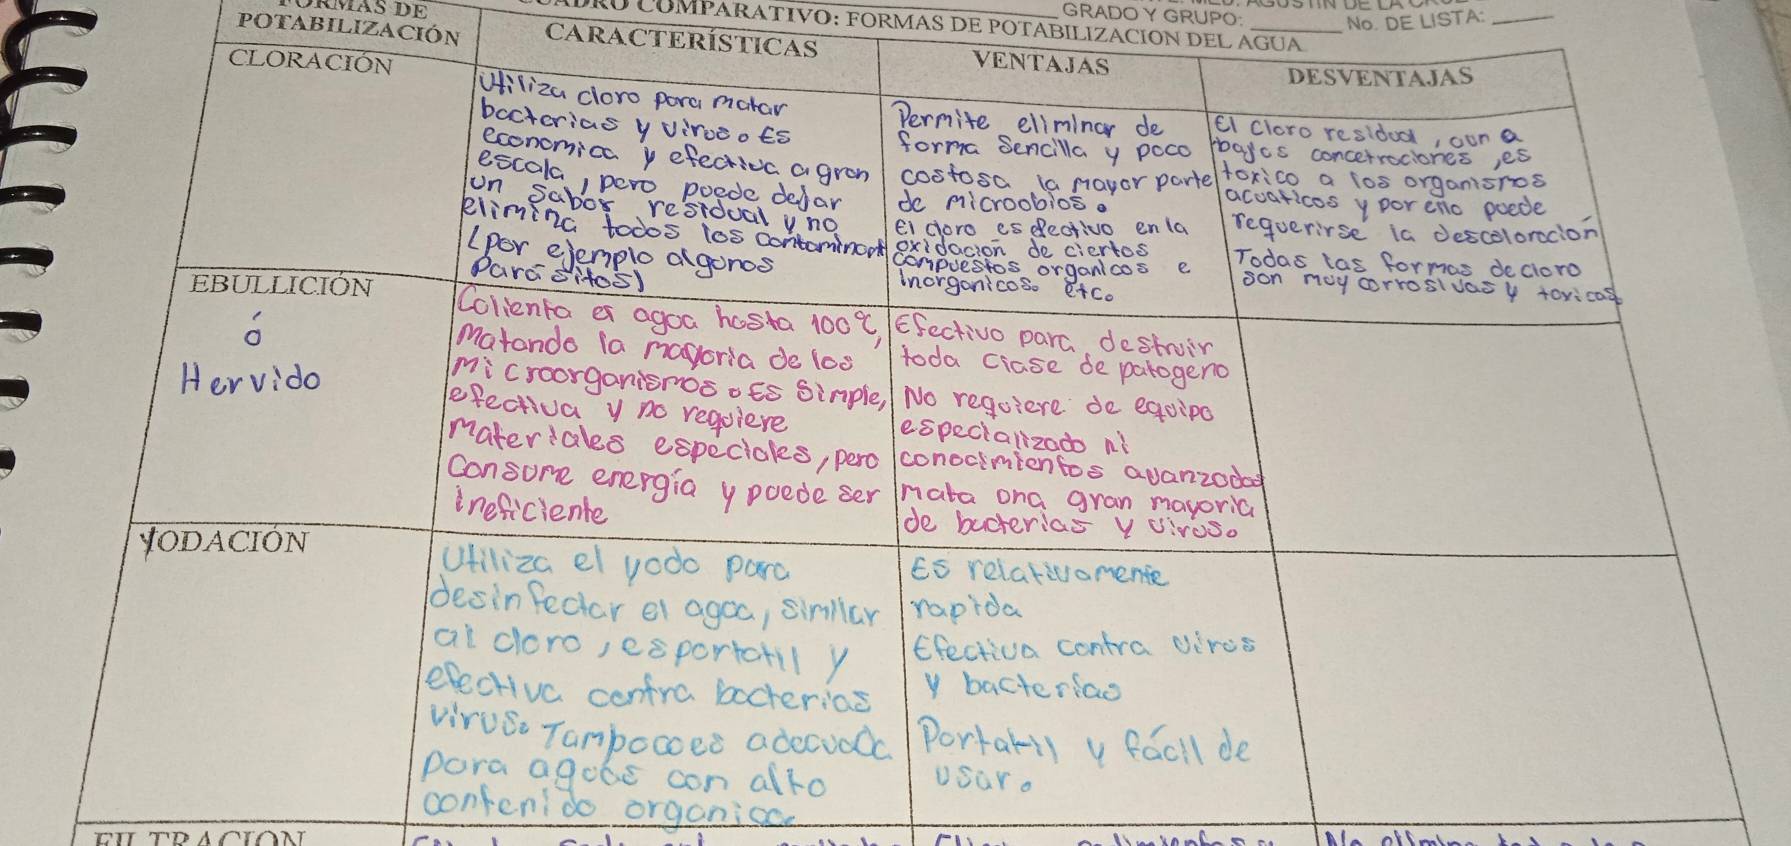 FORMAS DE
POTABILIZACIÓN
CUADRO COMPARATIVO: FORMAS DE POTABILIZACION DEL AGUA
GRADO Y GRUPO:
No. DE LISTA:
CARACTERÍSTICAS
VENTAJAS
DESVENTAJAS
CLORACIÓN
Utiliza cloro para matar
bacterias y virus. Es
economica y efectiva a gran
escala, pero puede dejar
un sabor residual y no
elimina todos los contaminant
(por ejemplo algunos
parásitos)
Permite eliminar de
forma sencilla y poco
costosa la mayor parte
de microobios.
El cloro es efectivo en la
oxidacion de ciertos
compuestos organicos e
inorganicos. etc.
El cloro residual, aun a
bajas concetraciones, es
toxico a los organismos
acuaticos y por ello puede
requerirse la descoloracion
Todas las formas de cloro
son muy corrosivas y toxicas
EBULLICIÓN
ó
Hervido
Calienta el agua hasta 100°C,
Matando la mayoria de los
microorganismos. Es simple,
efectiva y no requiere
materiales especiales, pero
consume energía y puede ser
ineficiente
Efectivo para destruir
toda clase de patogeno
No requiere de equipo
especializado ni
conocimientos avanzados
mata una gran mayoria
de bacterias y virus.
YODACIÓN
Utiliza el yodo para
desinfectar el agua, similar
al cloro, es portatil y
efectiva contra bacterias
virus. Tampoco es adecuada
para aguas con alto
contenido organico.
Es relativamente
rapida
Efectiva contra virus
y bacterias
Portatil y fácil de
usar.
FILTRACION